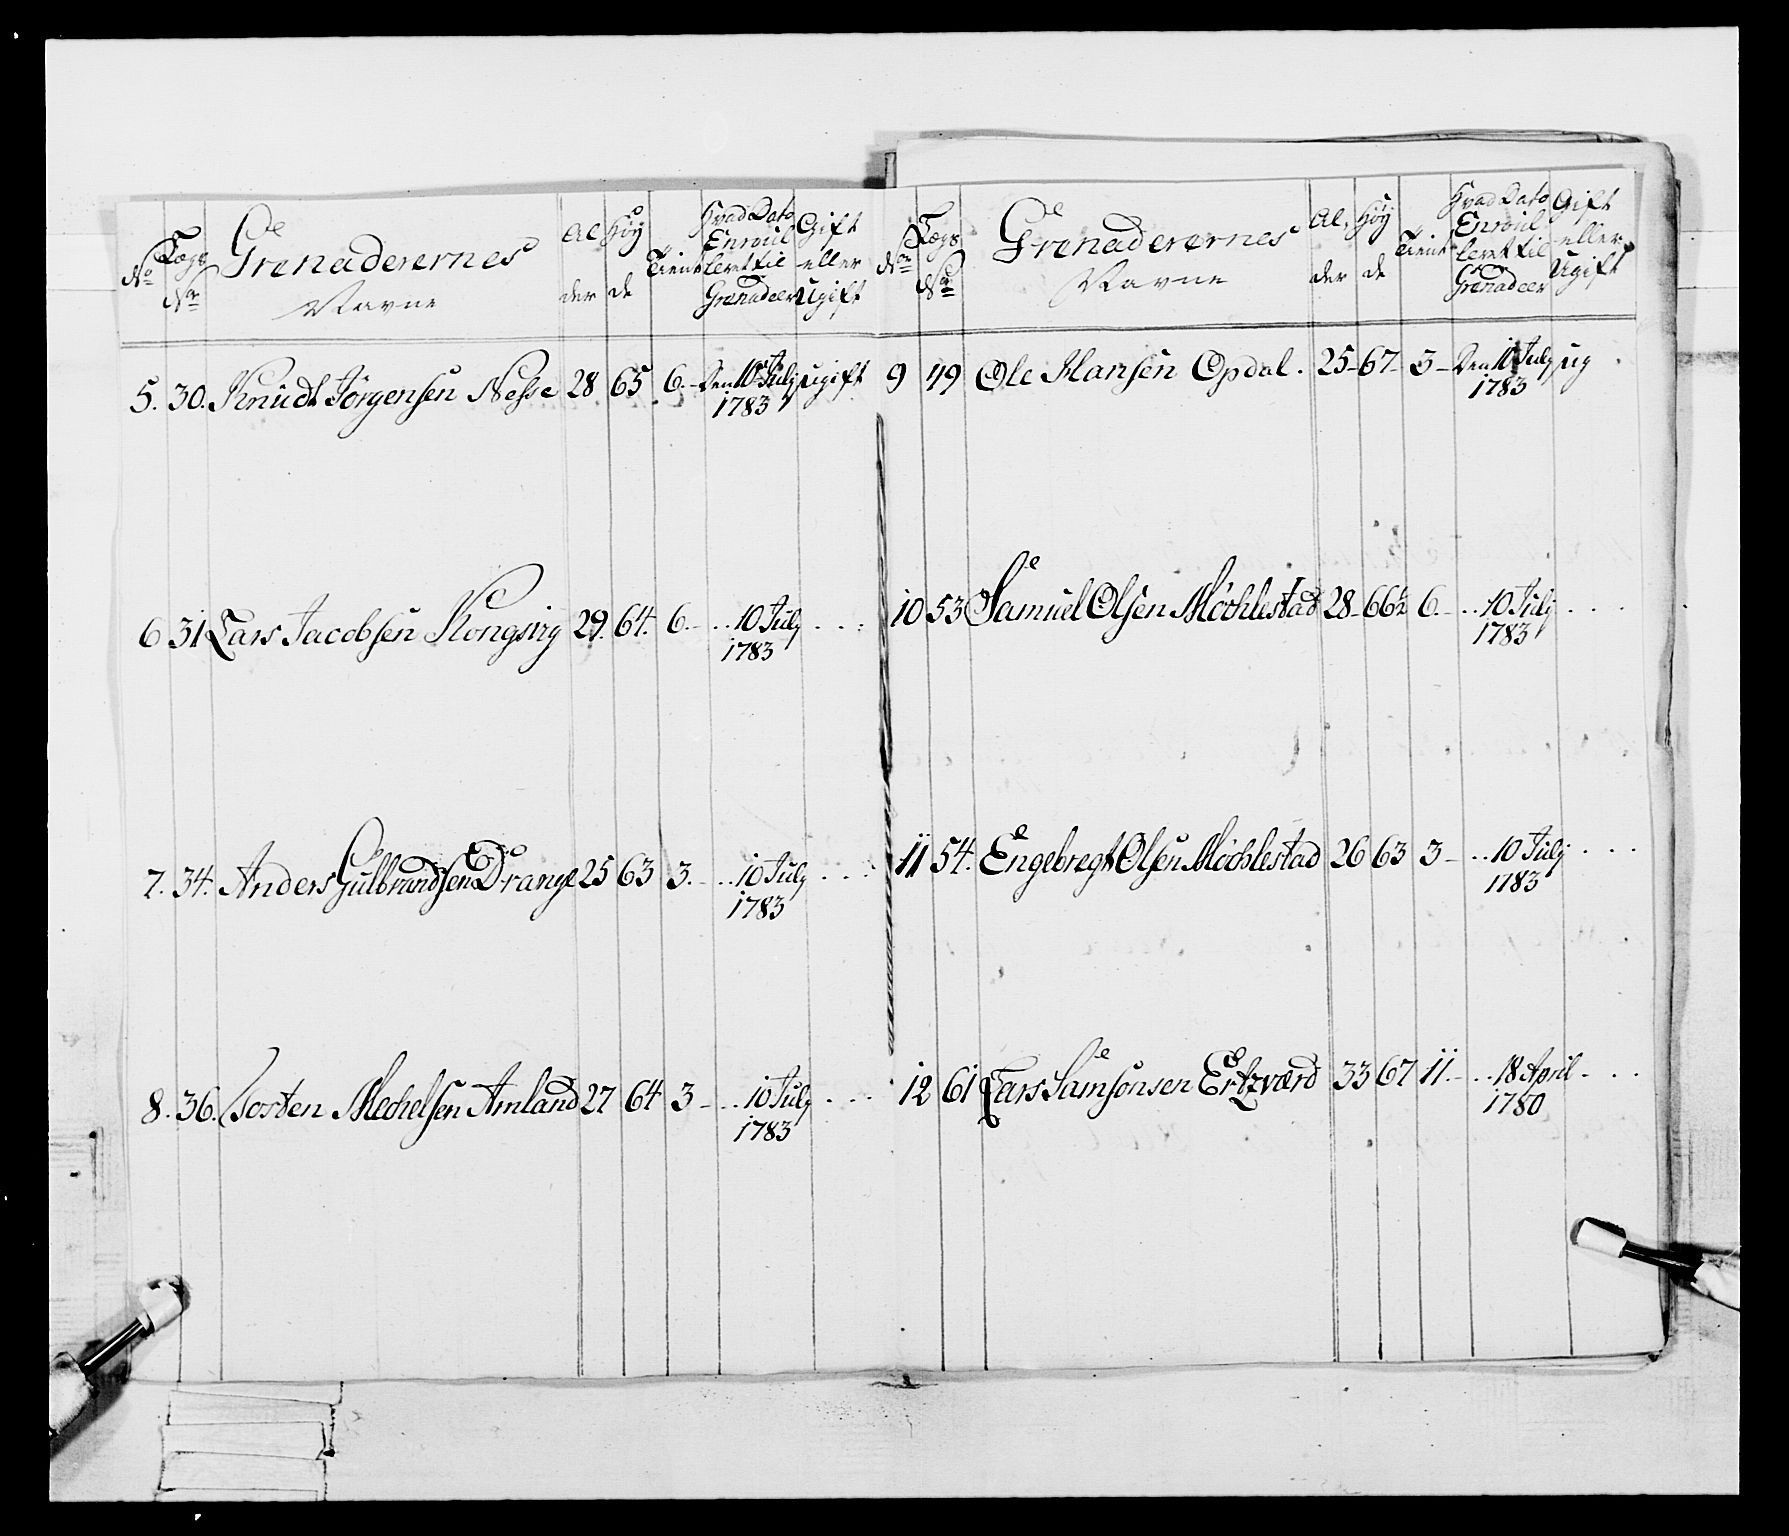 No
Lægs No
Grenaderernes Navne
Alder
Høyde
Tient
Hvad Dato Enroulleret til Grenadeer
Gift eller Ugift
5. 30. Knudt Jørgensen Nesse 28 65 6.- Den 10 Julj ugift
1783
6 31 Lars Jacobsen Kongsvig 29. 64. 6.- ... 10 Julj ...
1783
7. 34. Anders Gulbrandsen Drange 25 63 3.- ... 10 Julj ...
1783
8. 36. Torsten Mechelsen Amland 27 64 3- ... 10 Julj ...
1783
No
Lægs No
Grenaderernes Navne
Alder
Høyde
Tient
Hvad Dato Enroulleret til Grenadeer
Gift eller Ugift
9 49 Ole Hansen Opdal. 25- 67- 3- Den 10 Julj ug
1783
10 53 Samuel Olsen Møchlestad 28- 66½ 6.- ... 10 Julj ...
1783
11 54. Engebregt Olsen Møchlestad 26 63 3- ... 10 Julj ...
1783
12 61 Lars Samsonsen Ertzværd 33 67 11.- ... 18 April ...
1780